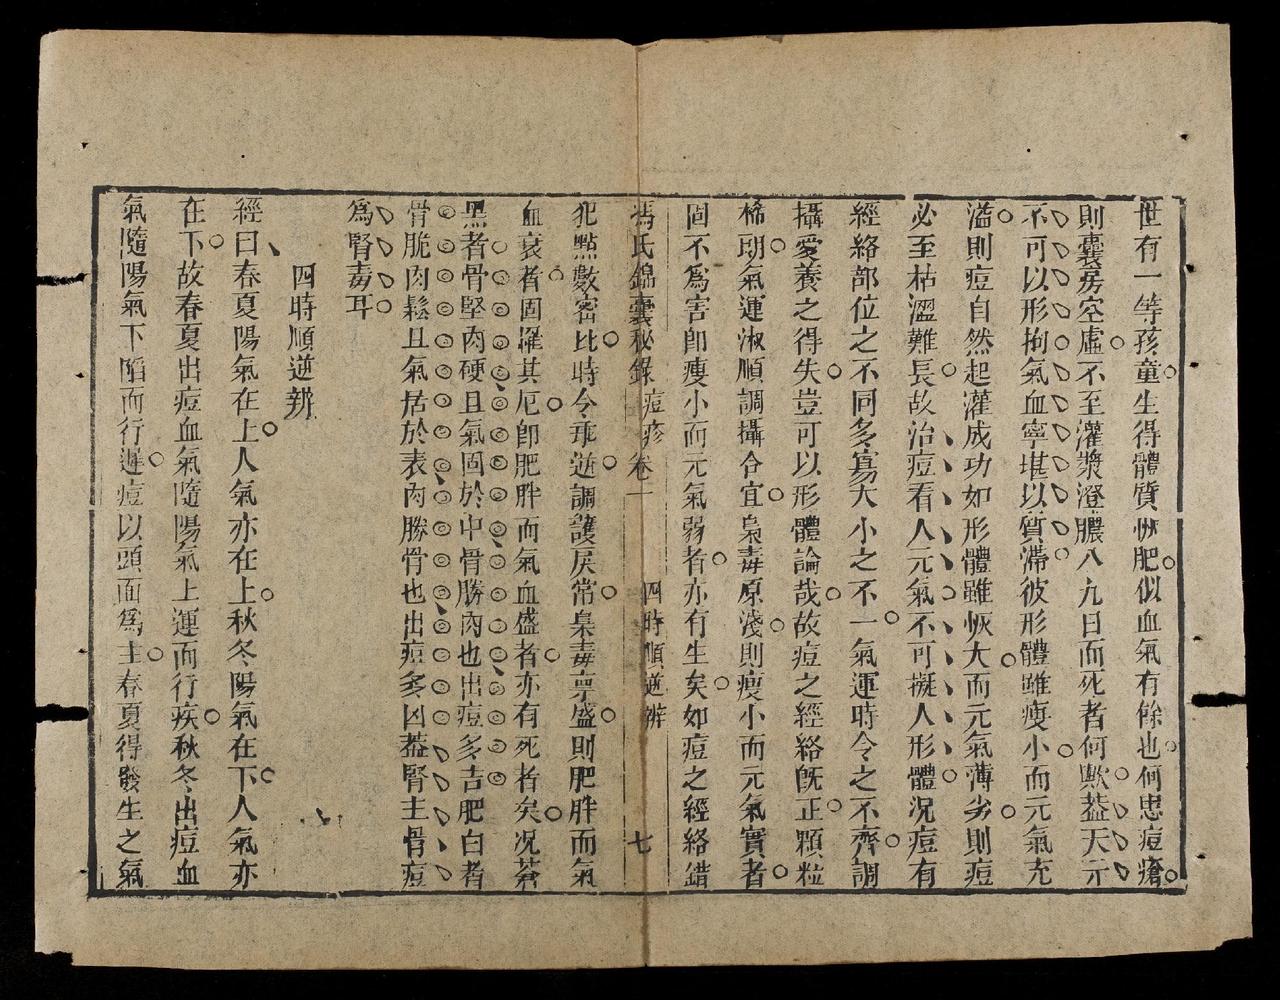 世有一等孩童生得體質恢肥似血氣有餘也何患痘瘡
則囊房空虛不至灌漿澄膿八九日而死者何歟葢天元
不可以形拘氣血寧堪以質滯彼形體雖瘦小而元氣充
溢則痘自然起灌成功如形體雖恢大而元氣薄劣則痘
必至枯澀難長故治痘看人元氣不可擬人形體况痘有
經絡部位之不同多寡大小之不一氣運時令之不齊調
攝愛養之得失豈可以形體論哉故痘之經絡旣正顆粒
稀朗氣運淑順調攝合宜梟毒原淺則瘦小而元氣實者
固不爲害卽瘦小而元氣弱者亦有生矣如痘之經絡錯
馮氏錦囊秘錄 痘疹卷一 四時順逆辨 七
犯點數密比時令乖逆調護戾常梟毒原盛則肥胖而氣
血衰者固罹其厄卽肥胖而氣血盛者亦有死者矣况蒼
黑者骨堅肉硬且氣固於中骨勝肉也出痘多吉肥白者
骨脆肉鬆且氣居於表肉勝骨也出痘多凶葢腎主骨痘
爲腎毒耳
四時順逆辨
經曰春夏陽氣在上人氣亦在上秋冬陽氣在下人氣亦
在下故春夏出痘血氣隨陽氣上運而行疾秋冬出痘血
氣隨陽氣下陷而行遲痘以頭面爲主春夏得發生之氣